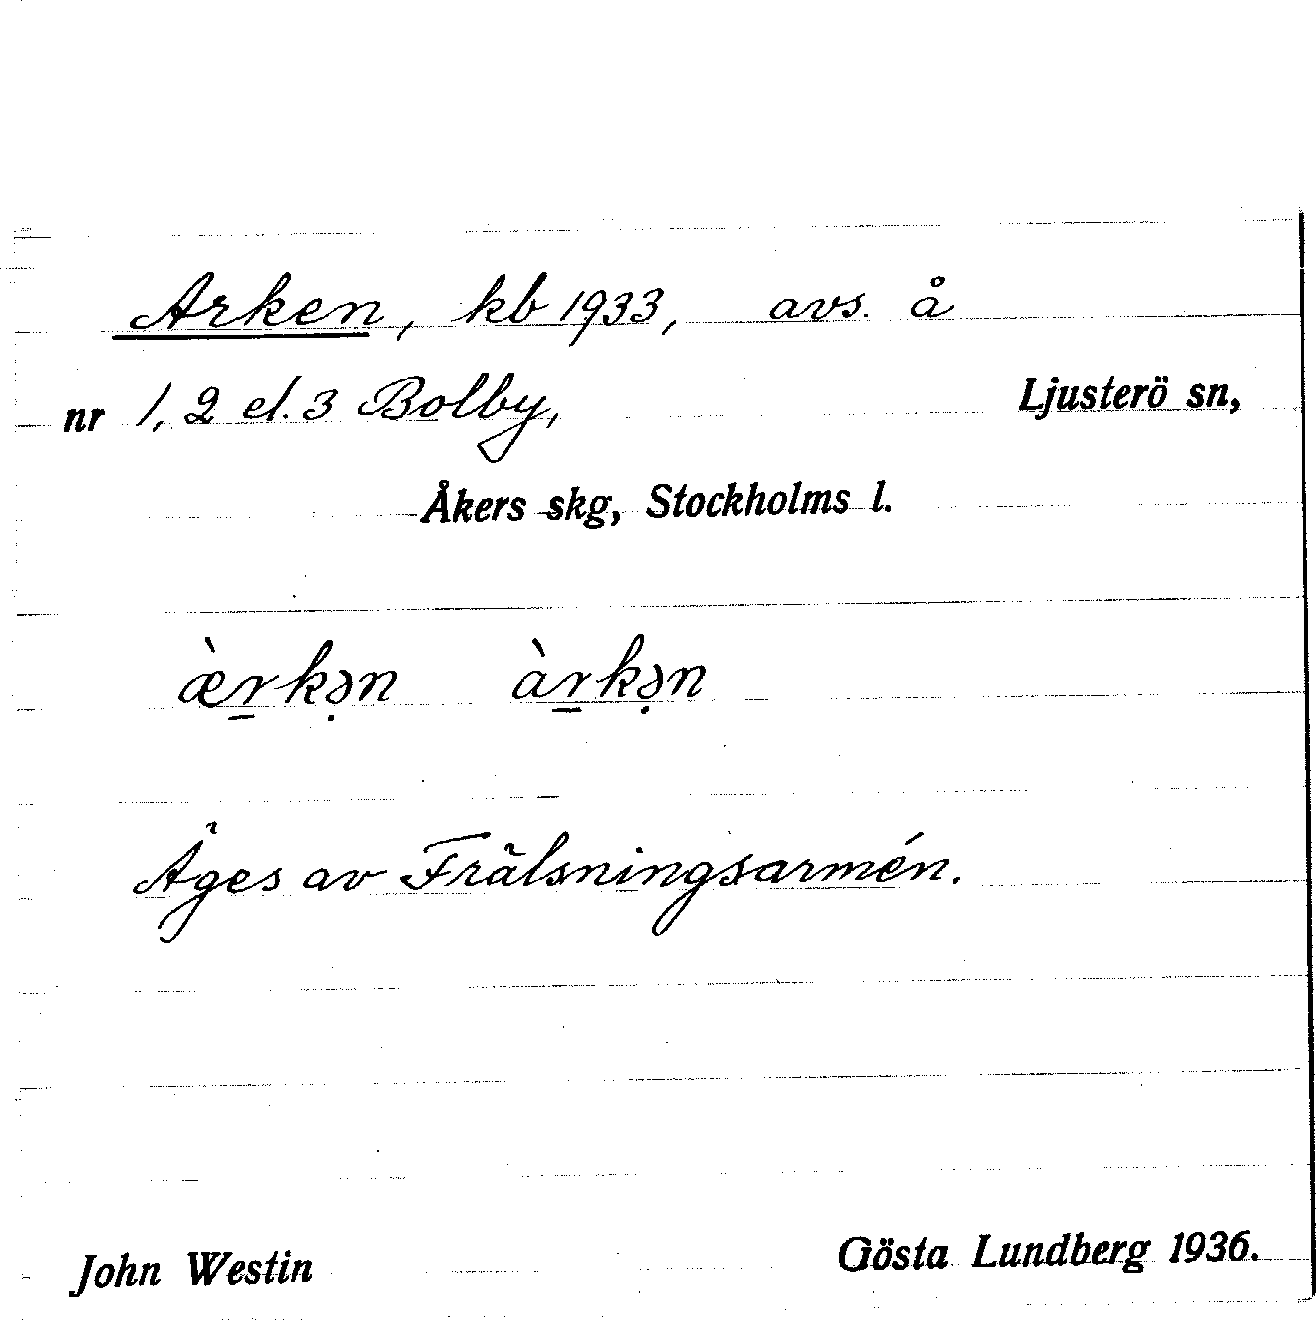 Arken, kb 1933, avs. å
nr 1, 2 el. 3 Bolby, Ljusterö sn,
Åkers skg, Stockholms l.
æ̀r̲kə̣n àr̲kə̣n
Äges av Frälsningsarmén.
John Westin Gösta Lundberg 1936.